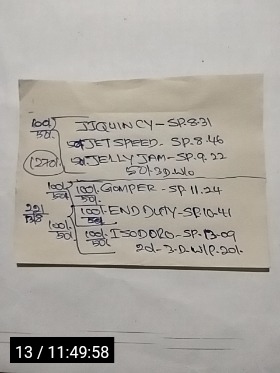 100/ JJQUINCY-SP.8.31
50/. JETSPEED-SP.8.46
1270/. JELLYJAM-SP.9.22
50/.3D.W/o
100/. 100/.GOMPER-SP.11.24
50/. 50/.
100/.ENDDUTY-SP.10.41
100/. 50/.
50/. 100/.ISODORO-SP.13.09
50/. 20/-3-D.W/P.20/.
13 / 11:49:58